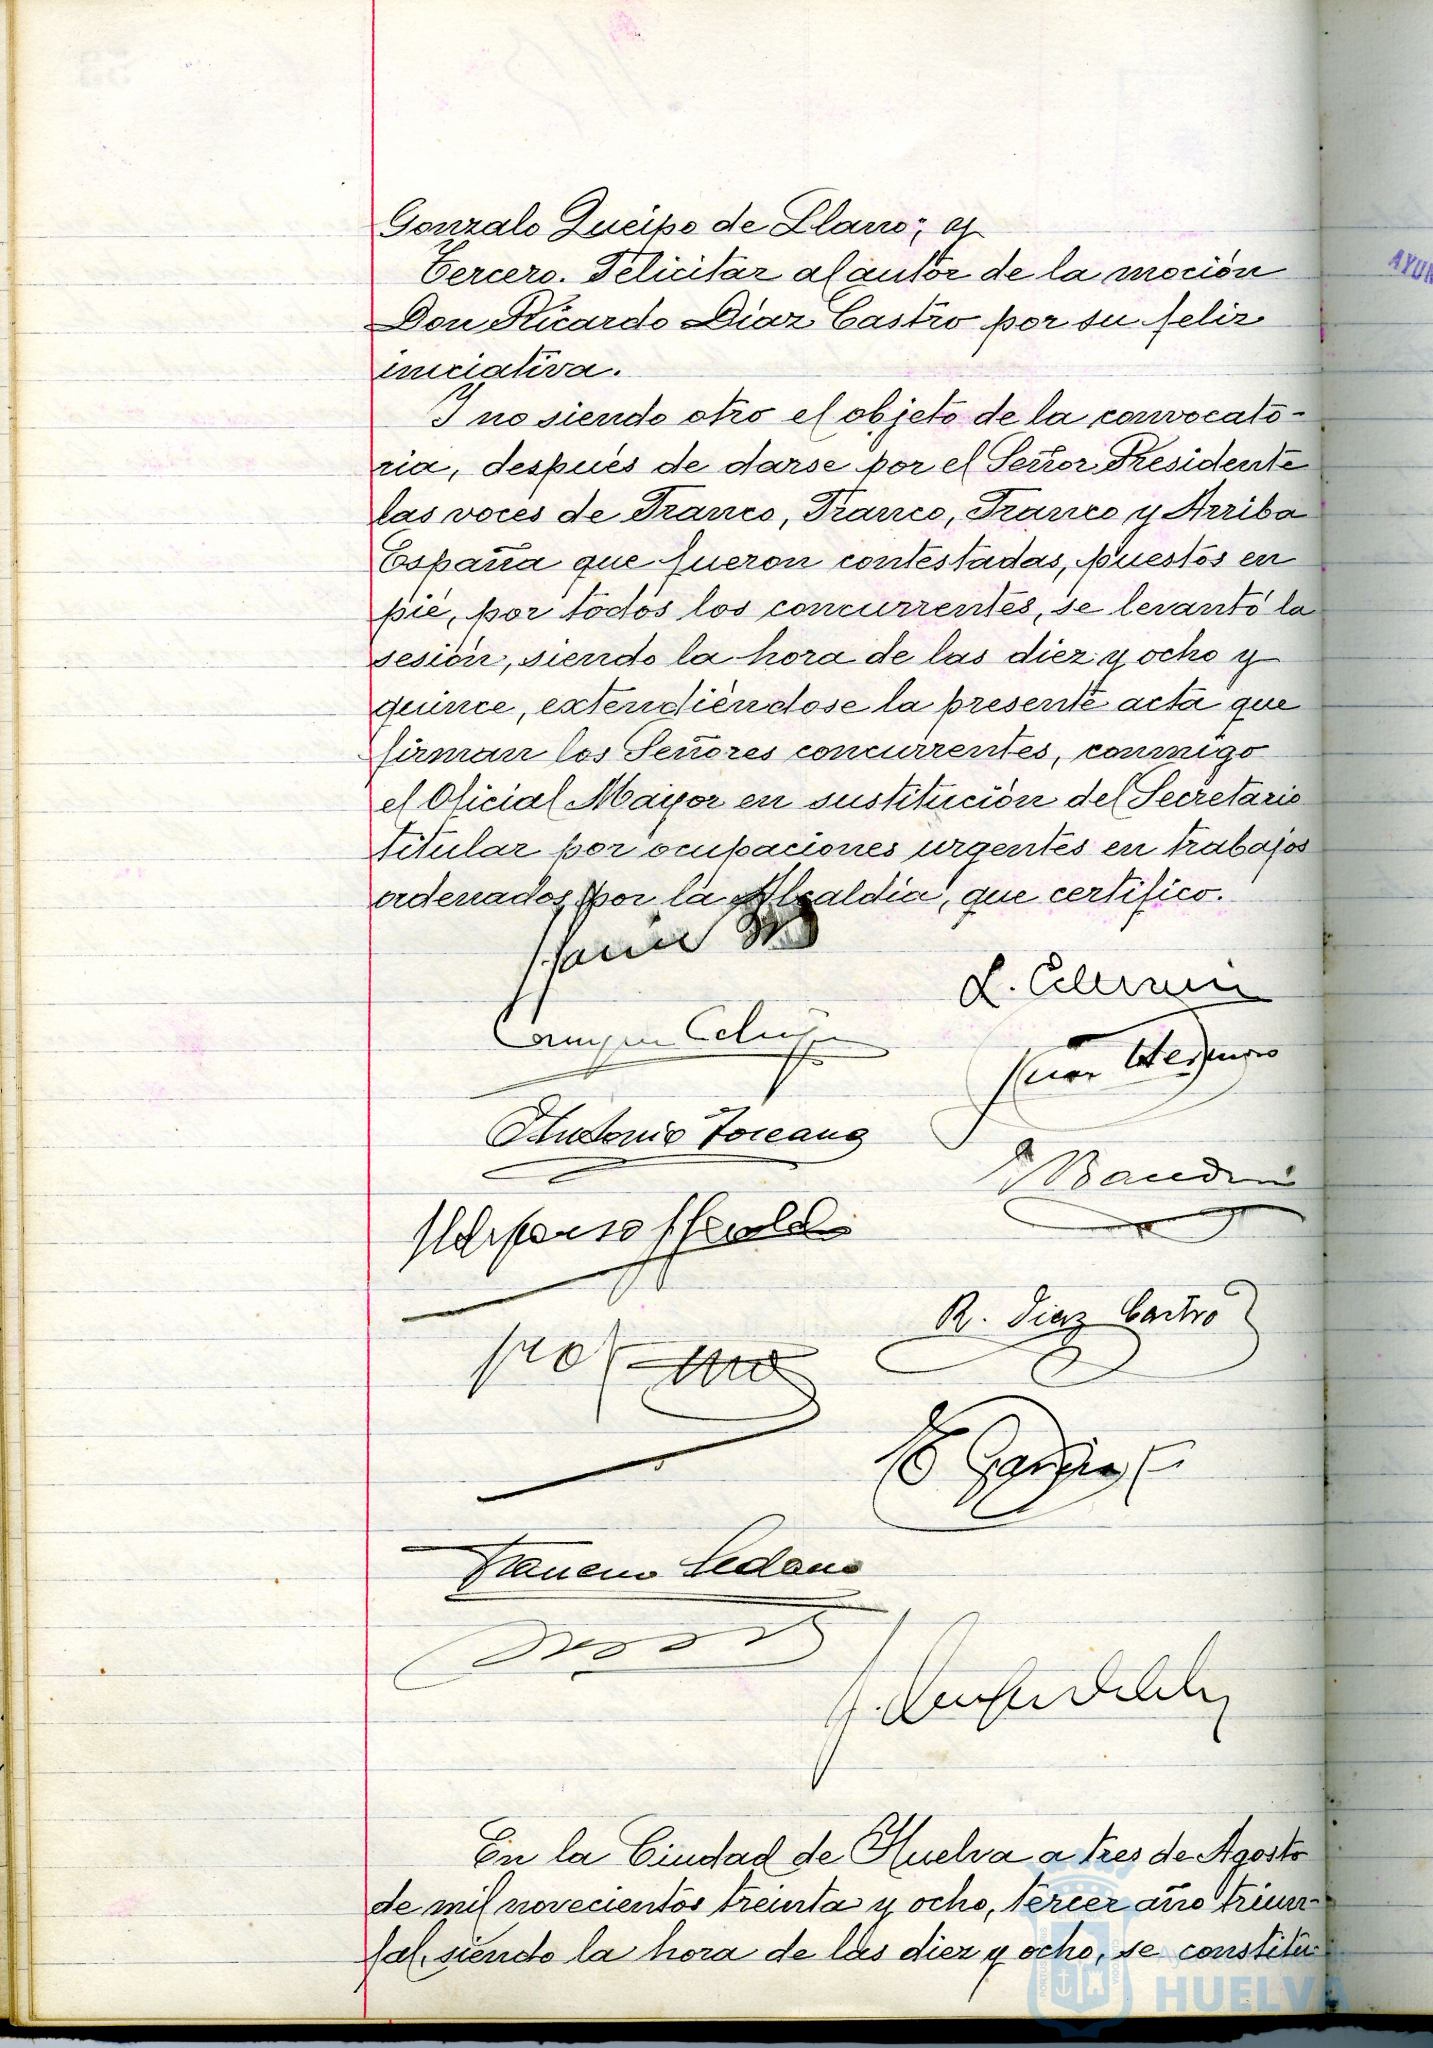 Gonzalo Queipo de Llano; y
Tercero. Felicitar al autor de la moción
Don Ricardo Díaz Castro por su feliz
iniciativa.
Y no siendo otro el objeto de la convocato-
ria, después de darse por el Señor Presidente
las voces de Franco, Franco, Franco y Arriba
España que fueron contestadas, puestos en
pié, por todos los concurrentes, se levantó la
sesión, siendo la hora de las diez y ocho y
quince, extendiéndose la presente acta que
firman los Señores concurrentes, conmigo
el Oficial Mayor en sustitución del Secretario
titular por ocupaciones urgentes en trabajos
ordenados por la Alcaldía, que certifico.
Antonio Toscano
R. Diaz Castro
Francisco Sedano
En la Ciudad de Huelva a tres de Agosto
de mil novecientos treinta y ocho, tercer año triun-
fal, siendo la hora de las diez y ocho, se constitu-
HUELVA